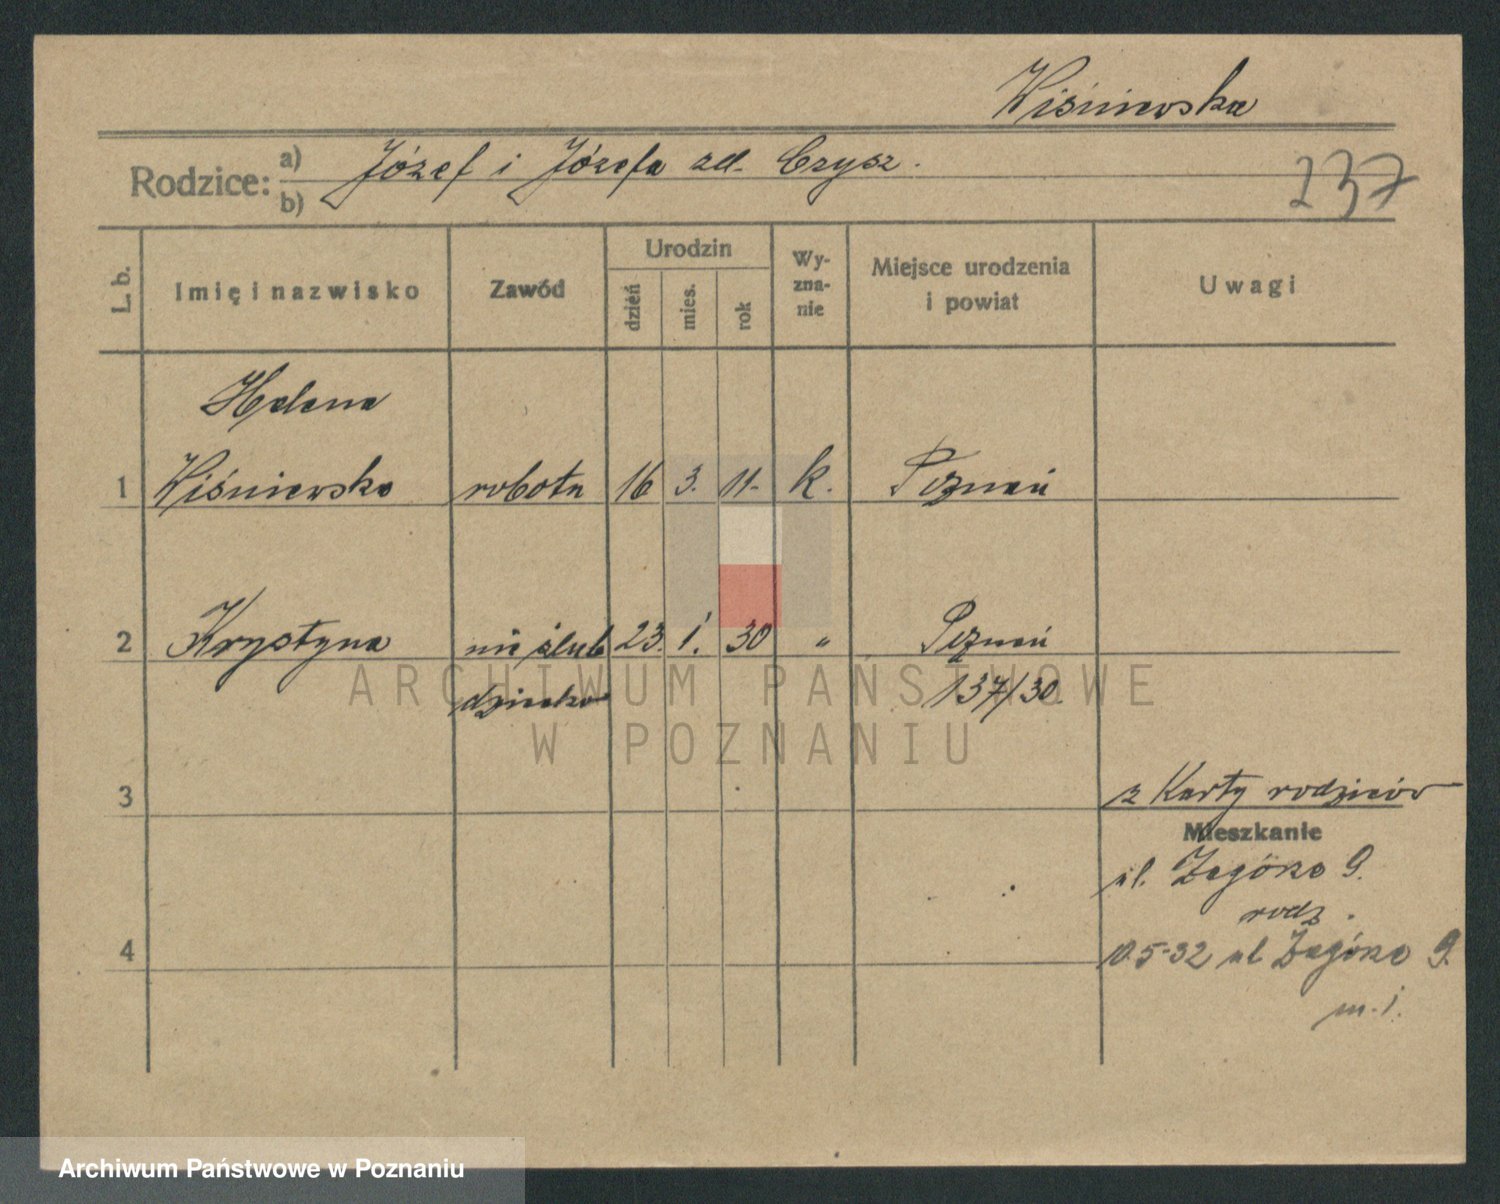 Wiśniewska
Rodzice: a) Józef i Józefa zd. Czysz.
b)
237
L. b.
Imię i nazwisko
Zawód
Urodzin
dzień
mies.
rok
Wy-
zna-
nie
Miejsce urodzenia
i powiat
Uwagi
Helena
1 Wiśniewska robotn 16 3. 11. k. Poznań
2 Krystyna nieślub 23. 1. 30 " Poznań
dziecko 137/30.
3
z Karty rodziców
Mieszkanie
ul. Zagórze 9.
rodz.
4
10.5-32 ul Zagórze 9.
m. 1.
ARCHIWUM PAŃSTWOWE
W POZNANIU
Archiwum Państwowe w Poznaniu